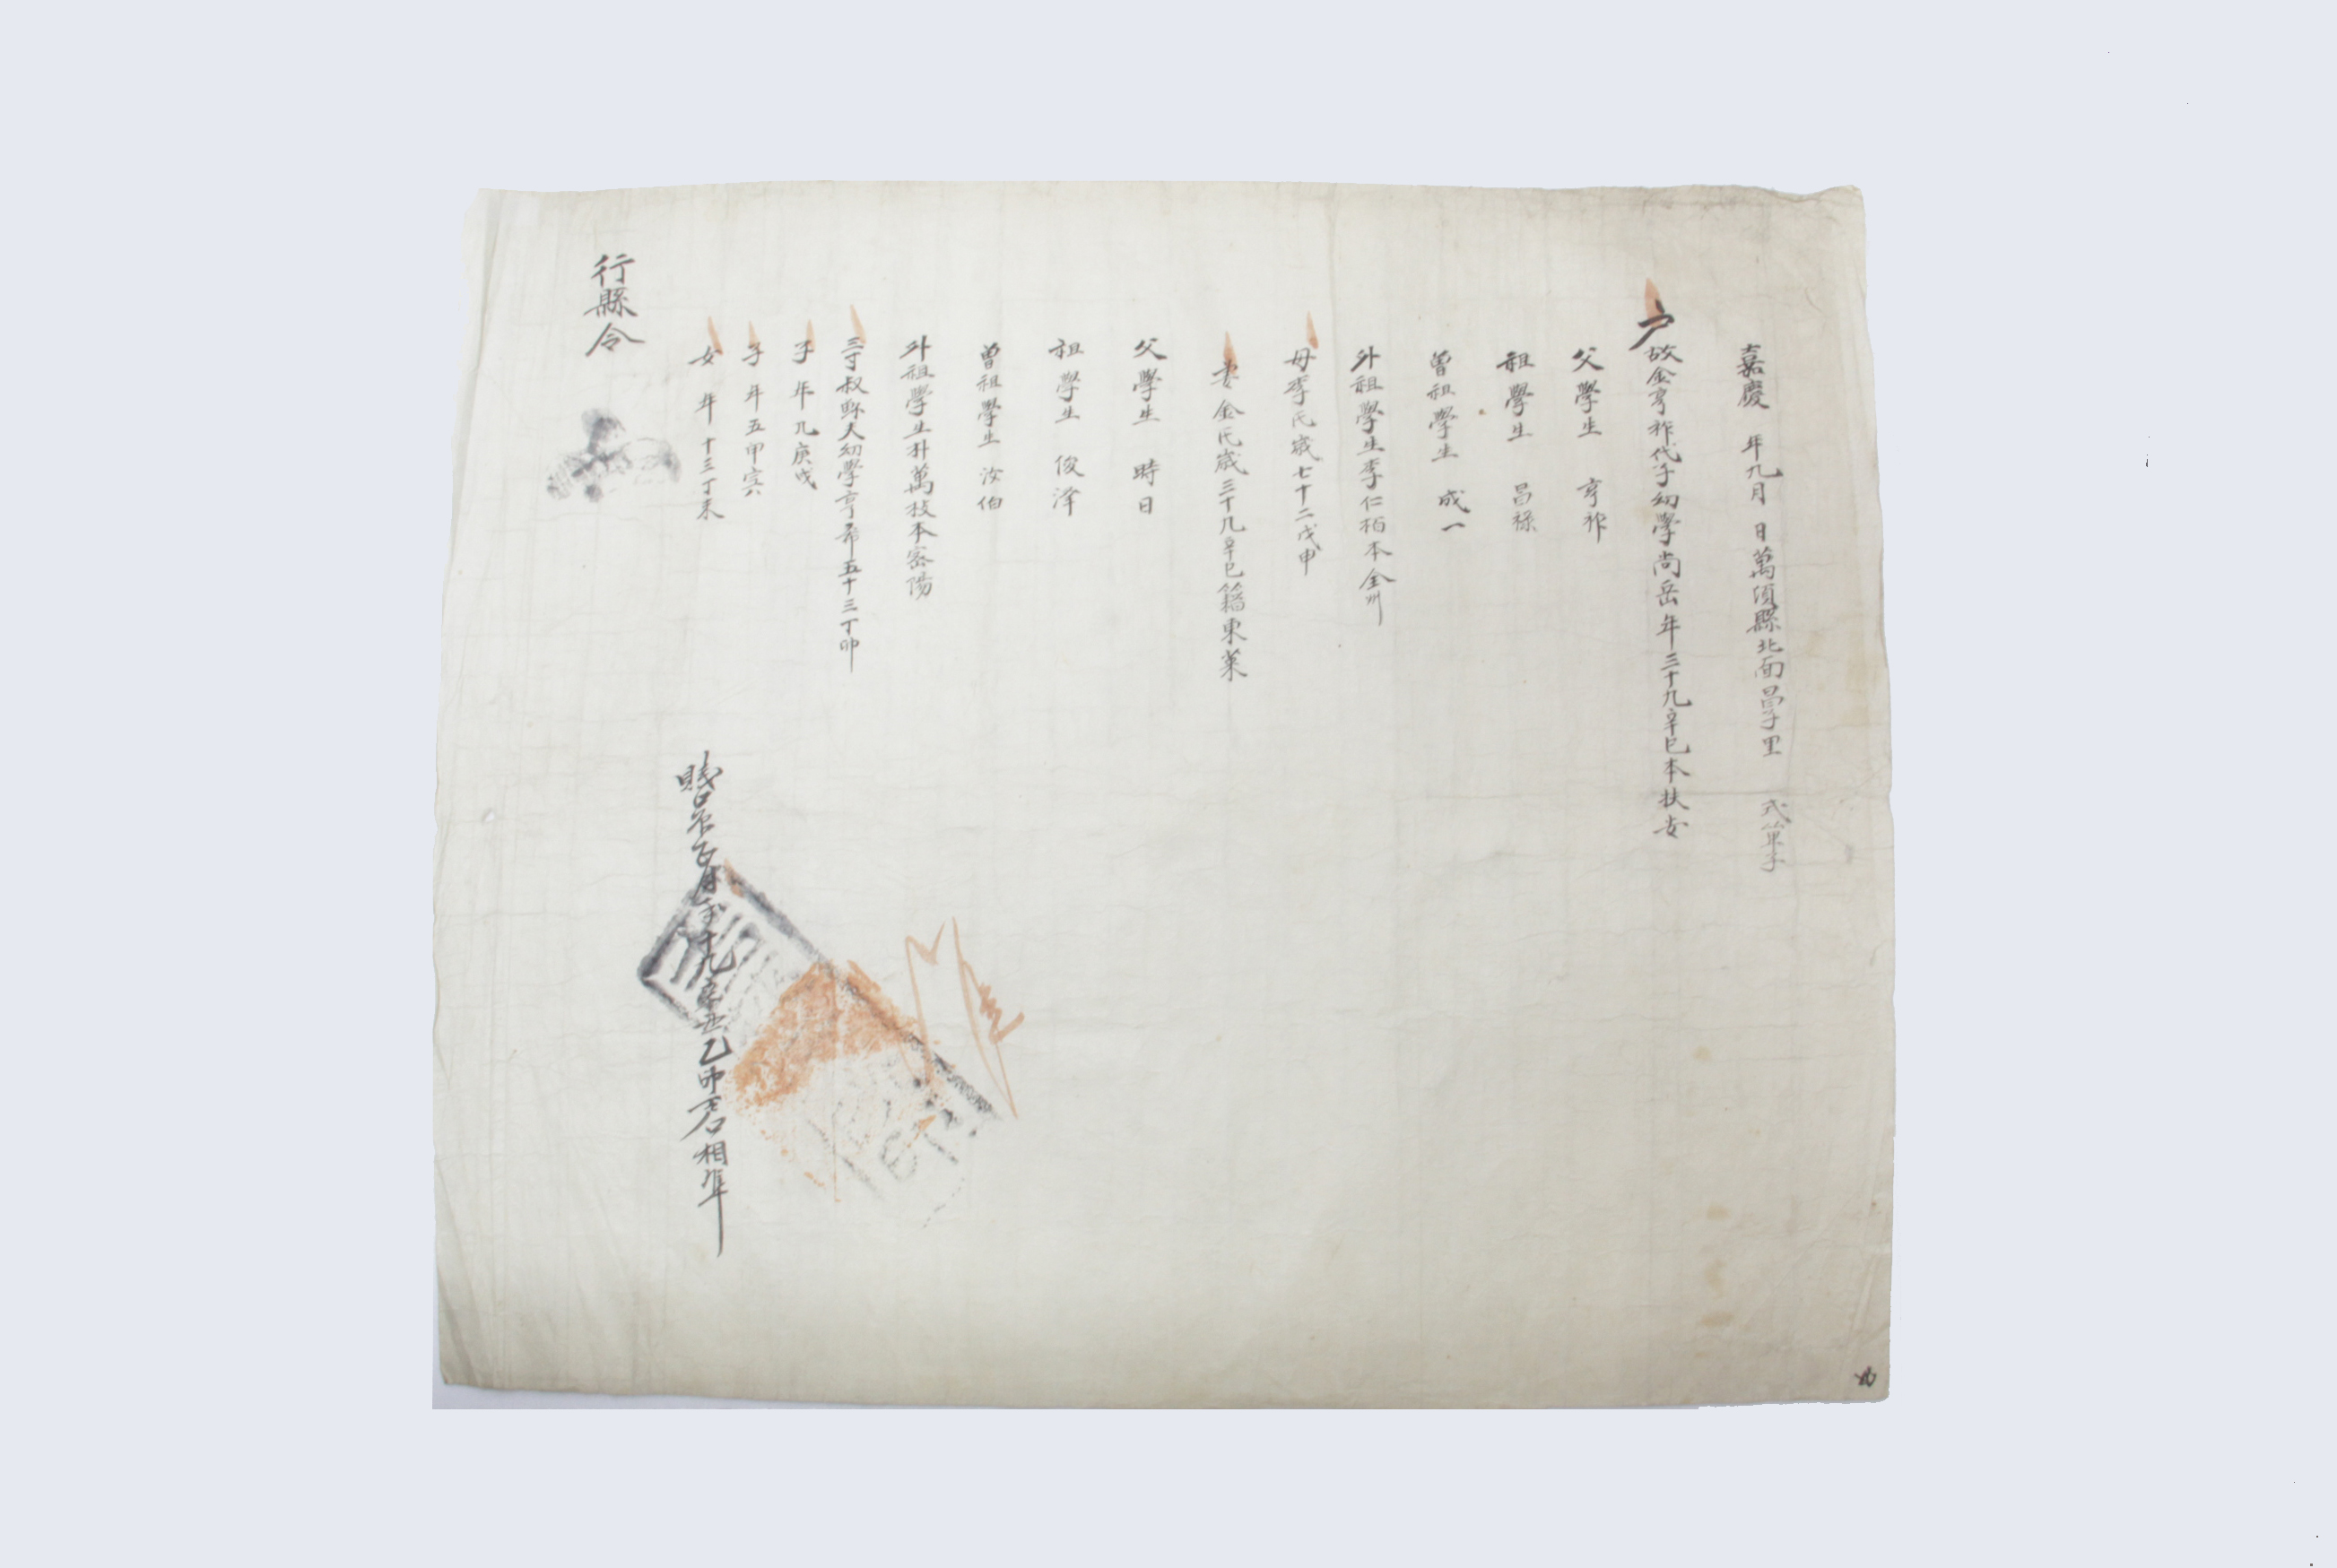 嘉慶 年九月 日萬頃縣北面昌子里 式單子
戶故金亨祚代子幼學尚岳年三十九辛巳本扶安
父學生 亨祚
祖學生 昌祿
曾祖學生 成一
外祖學生李仁栢本全州
母李氏歲七十二戊申
妻金氏歲三十九辛巳籍東萊
父學生 時日
祖學生 俊澤
曾祖學生 汝伯
外祖學生朴萬枝本密陽
三寸叔鰥夫幼學亨希五十三丁卯
子 年九庚戌
子 年五甲寅
女 年十三丁未
賤口 年十九 乙卯 相準
行縣令